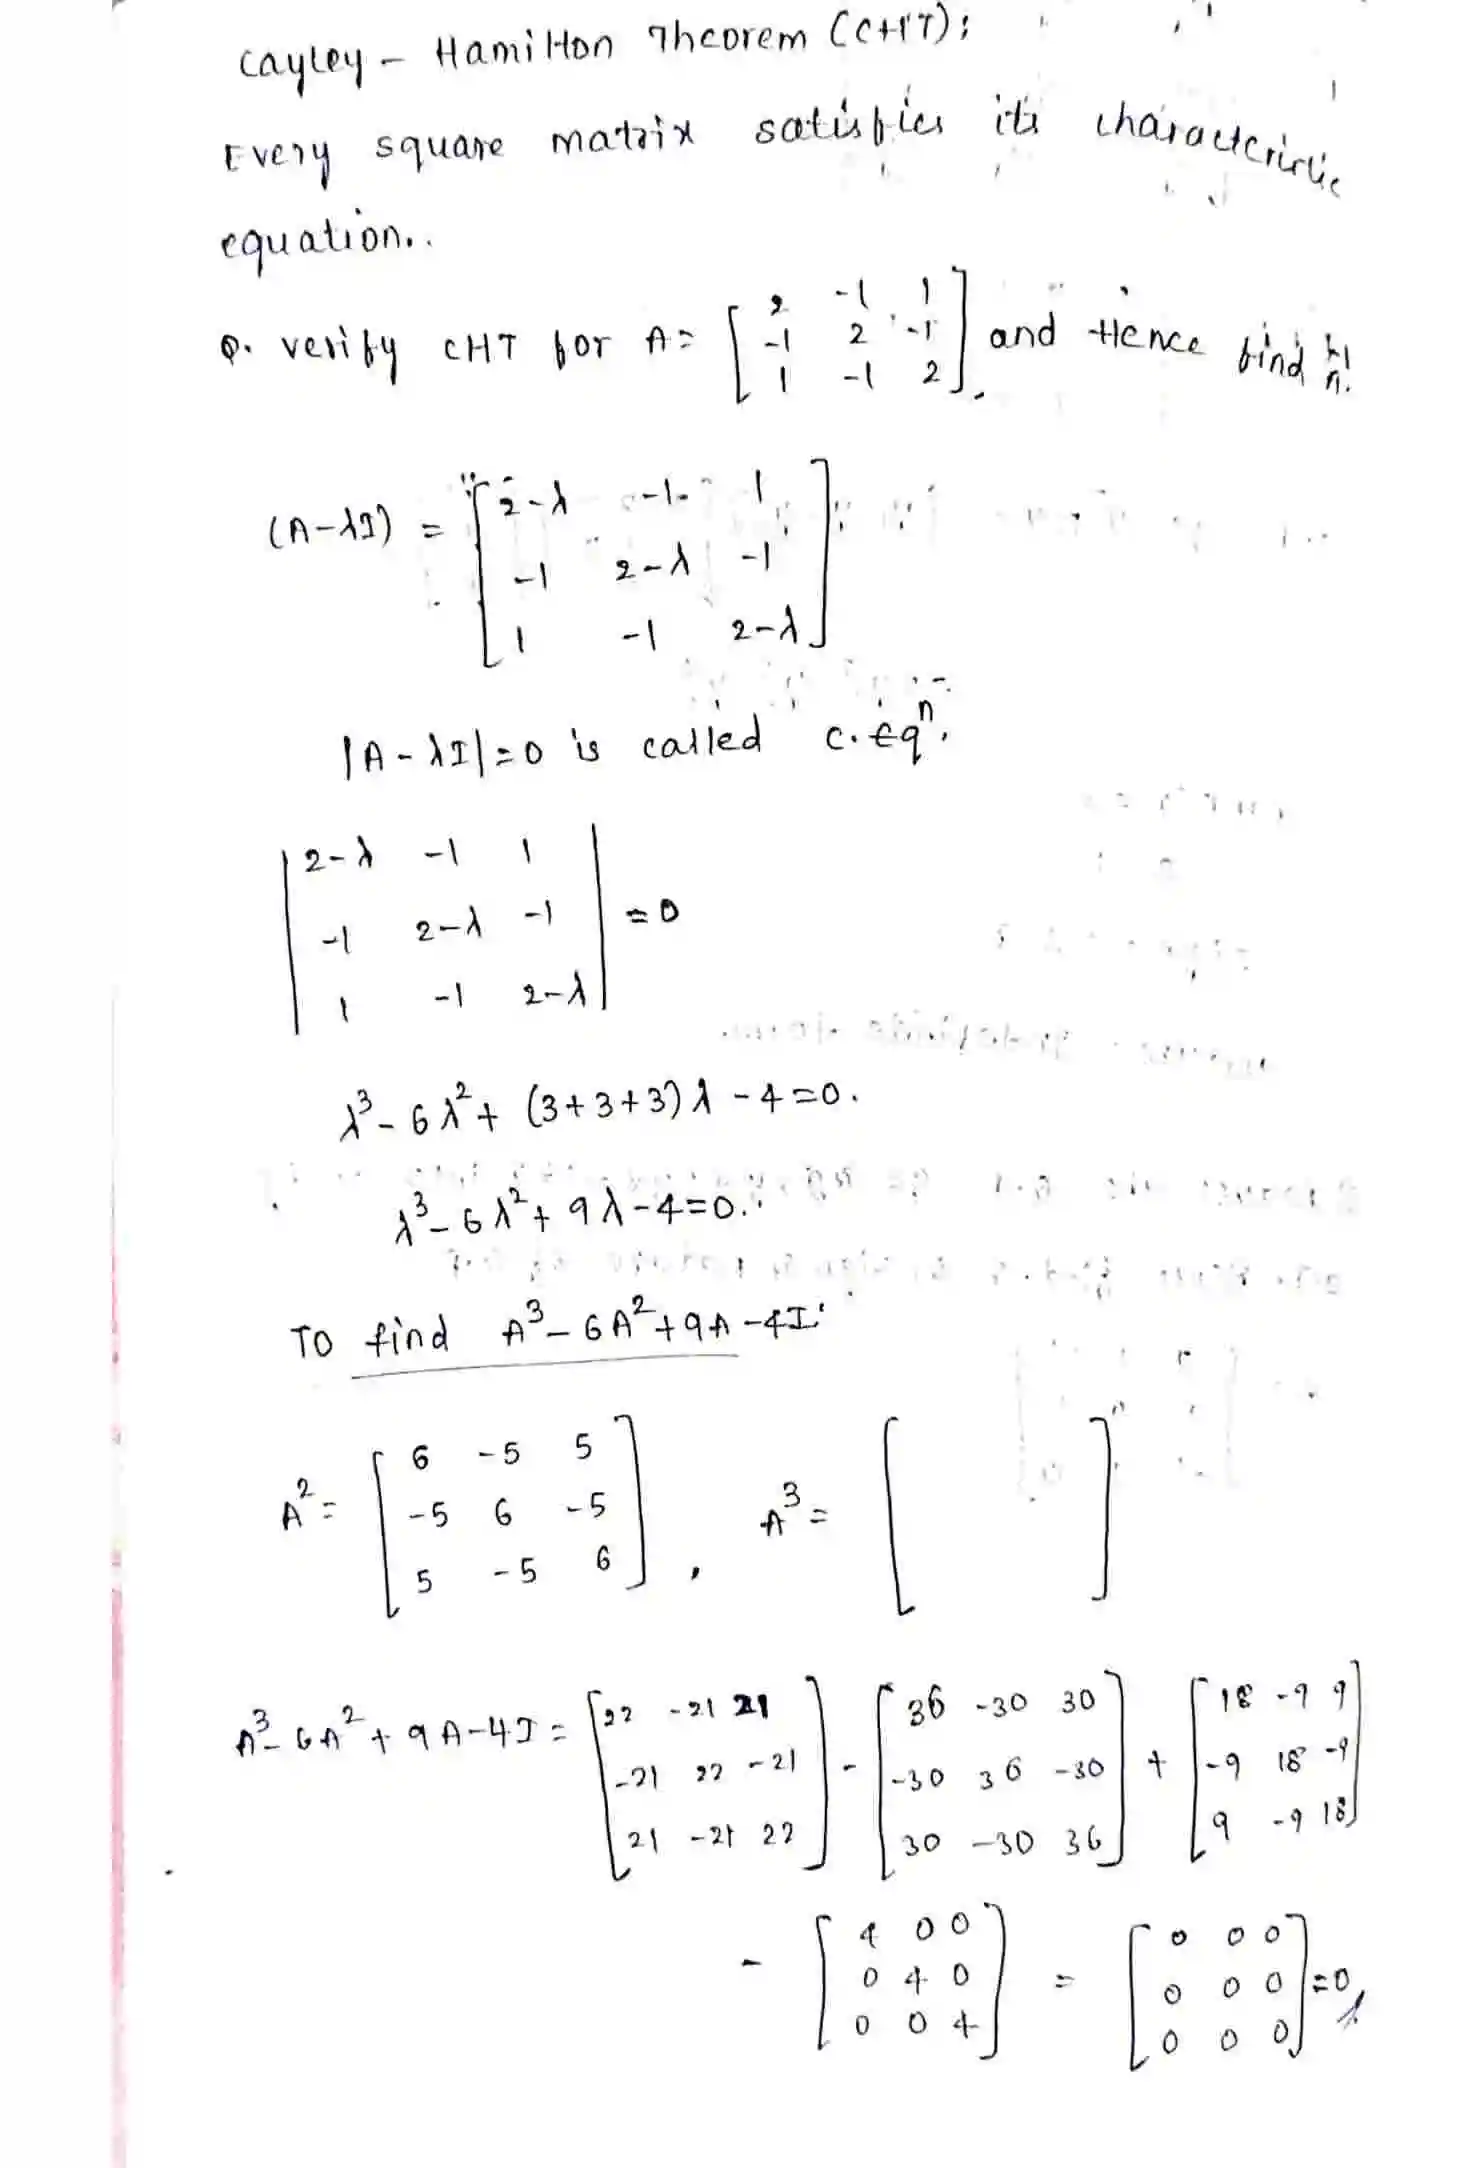 Cayley - Hamilton Theorem (CHT):
Every square matrix satisfies its characteristic
equation..
Q. verify CHT for A= [2 -1 1; -1 2 -1; 1 -1 2]. and Hence find
(A-λI) = [2-λ -1 1; -1 2-λ -1; 1 -1 2-λ]
|A-λI|=0 is called C.Eqⁿ.
|2-λ -1 1; -1 2-λ -1; 1 -1 2-λ| =0
λ³-6λ²+(3+3+3)λ-4=0.
λ³-6λ²+9λ-4=0.
To find A³-6A²+9A-4I:
A²= [6 -5 5; -5 6 -5; 5 -5 6], A³= [ ]
A³-6A²+9A-4I = [22 -21 21; -21 22 -21; 21 -21 22] - [36 -30 30; -30 36 -30; 30 -30 36] + [18 -9 9; -9 18 -9; 9 -9 18]
- [4 0 0; 0 4 0; 0 0 4] = [0 0 0; 0 0 0; 0 0 0] =0